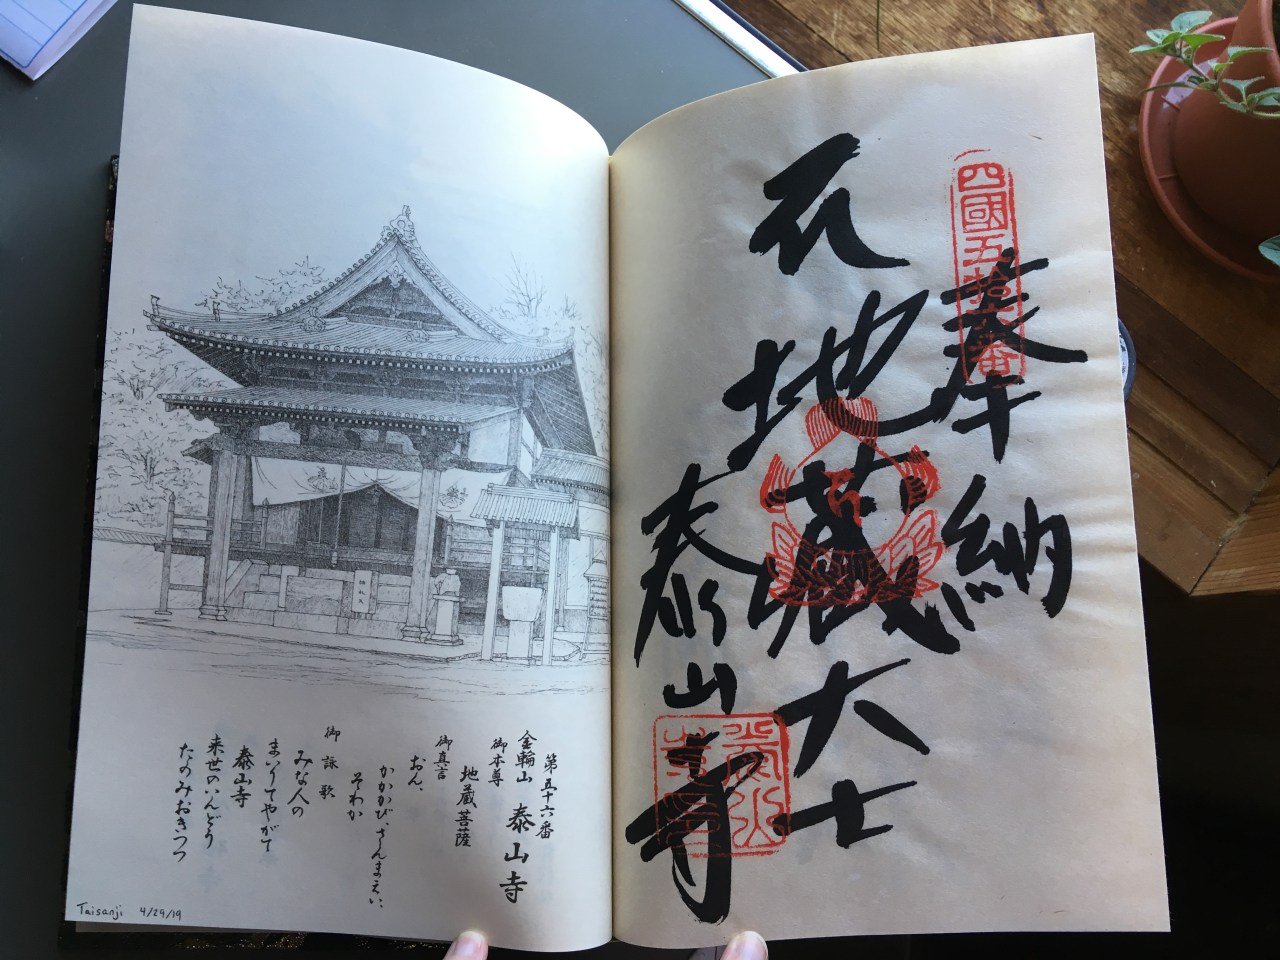 四國五拾六番
奉納
地蔵大士
泰山寺
第五十六番
金輪山 泰山寺
御本尊
地蔵菩薩
御真言
おん、
かかかび、さんまえい、
そわか
御詠歌
みな人の
まいりてやがて
泰山寺
来世のいんどう
たのみおきつつ
Taisanji 4/29/19